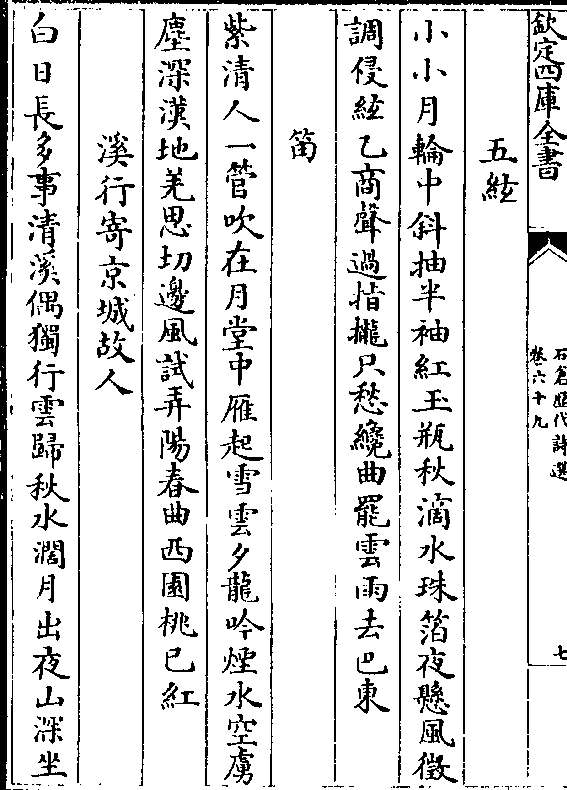 欽定四庫全書
石倉歷代詩選
卷六十九
七
五絃
小小月輪中斜抽半袖紅玉瓶秋滴水珠箔夜懸風徵
調侵絃乙商聲過指攏只愁纔曲罷雲雨去巴東
笛
紫清人一管吹在月堂中雁起雪雲夕龍吟煙水空虜
塵深漢地羌思切邊風試弄陽春曲西園桃已紅
溪行寄京城故人
白日長多事清溪偶獨行雲歸秋水濶月出夜山深坐